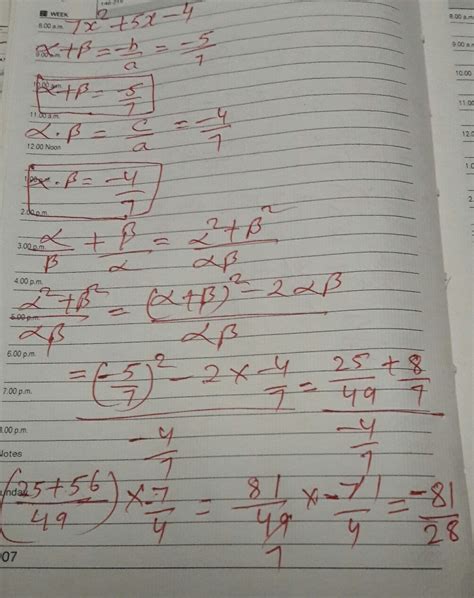 WEEK
8.00 a.m. 7x² + 5x - 4
9.00 a.m. α+β = -b/a = -5/7
10.00 a.m. α+β = -5/7
11.00 a.m.
α·β = c/a = -4/7
12.00 Noon
1.00 p.m. α·β = -4/7
2.00 p.m.
3.00 p.m. α/β + β/α = (α²+β²)/αβ
4.00 p.m.
5.00 p.m. (α²+β²)/αβ = ((α+β)² - 2αβ)/αβ
6.00 p.m.
7.00 p.m. = ((-5/7)² - 2 × -4/7)/(-4/7) = (25/49 + 8/7)/(-4/7)
8.00 p.m.
Notes
Sunday
((25+56)/49) × -7/4 = 81/49 7 × -7 1/4 = -81/28
007